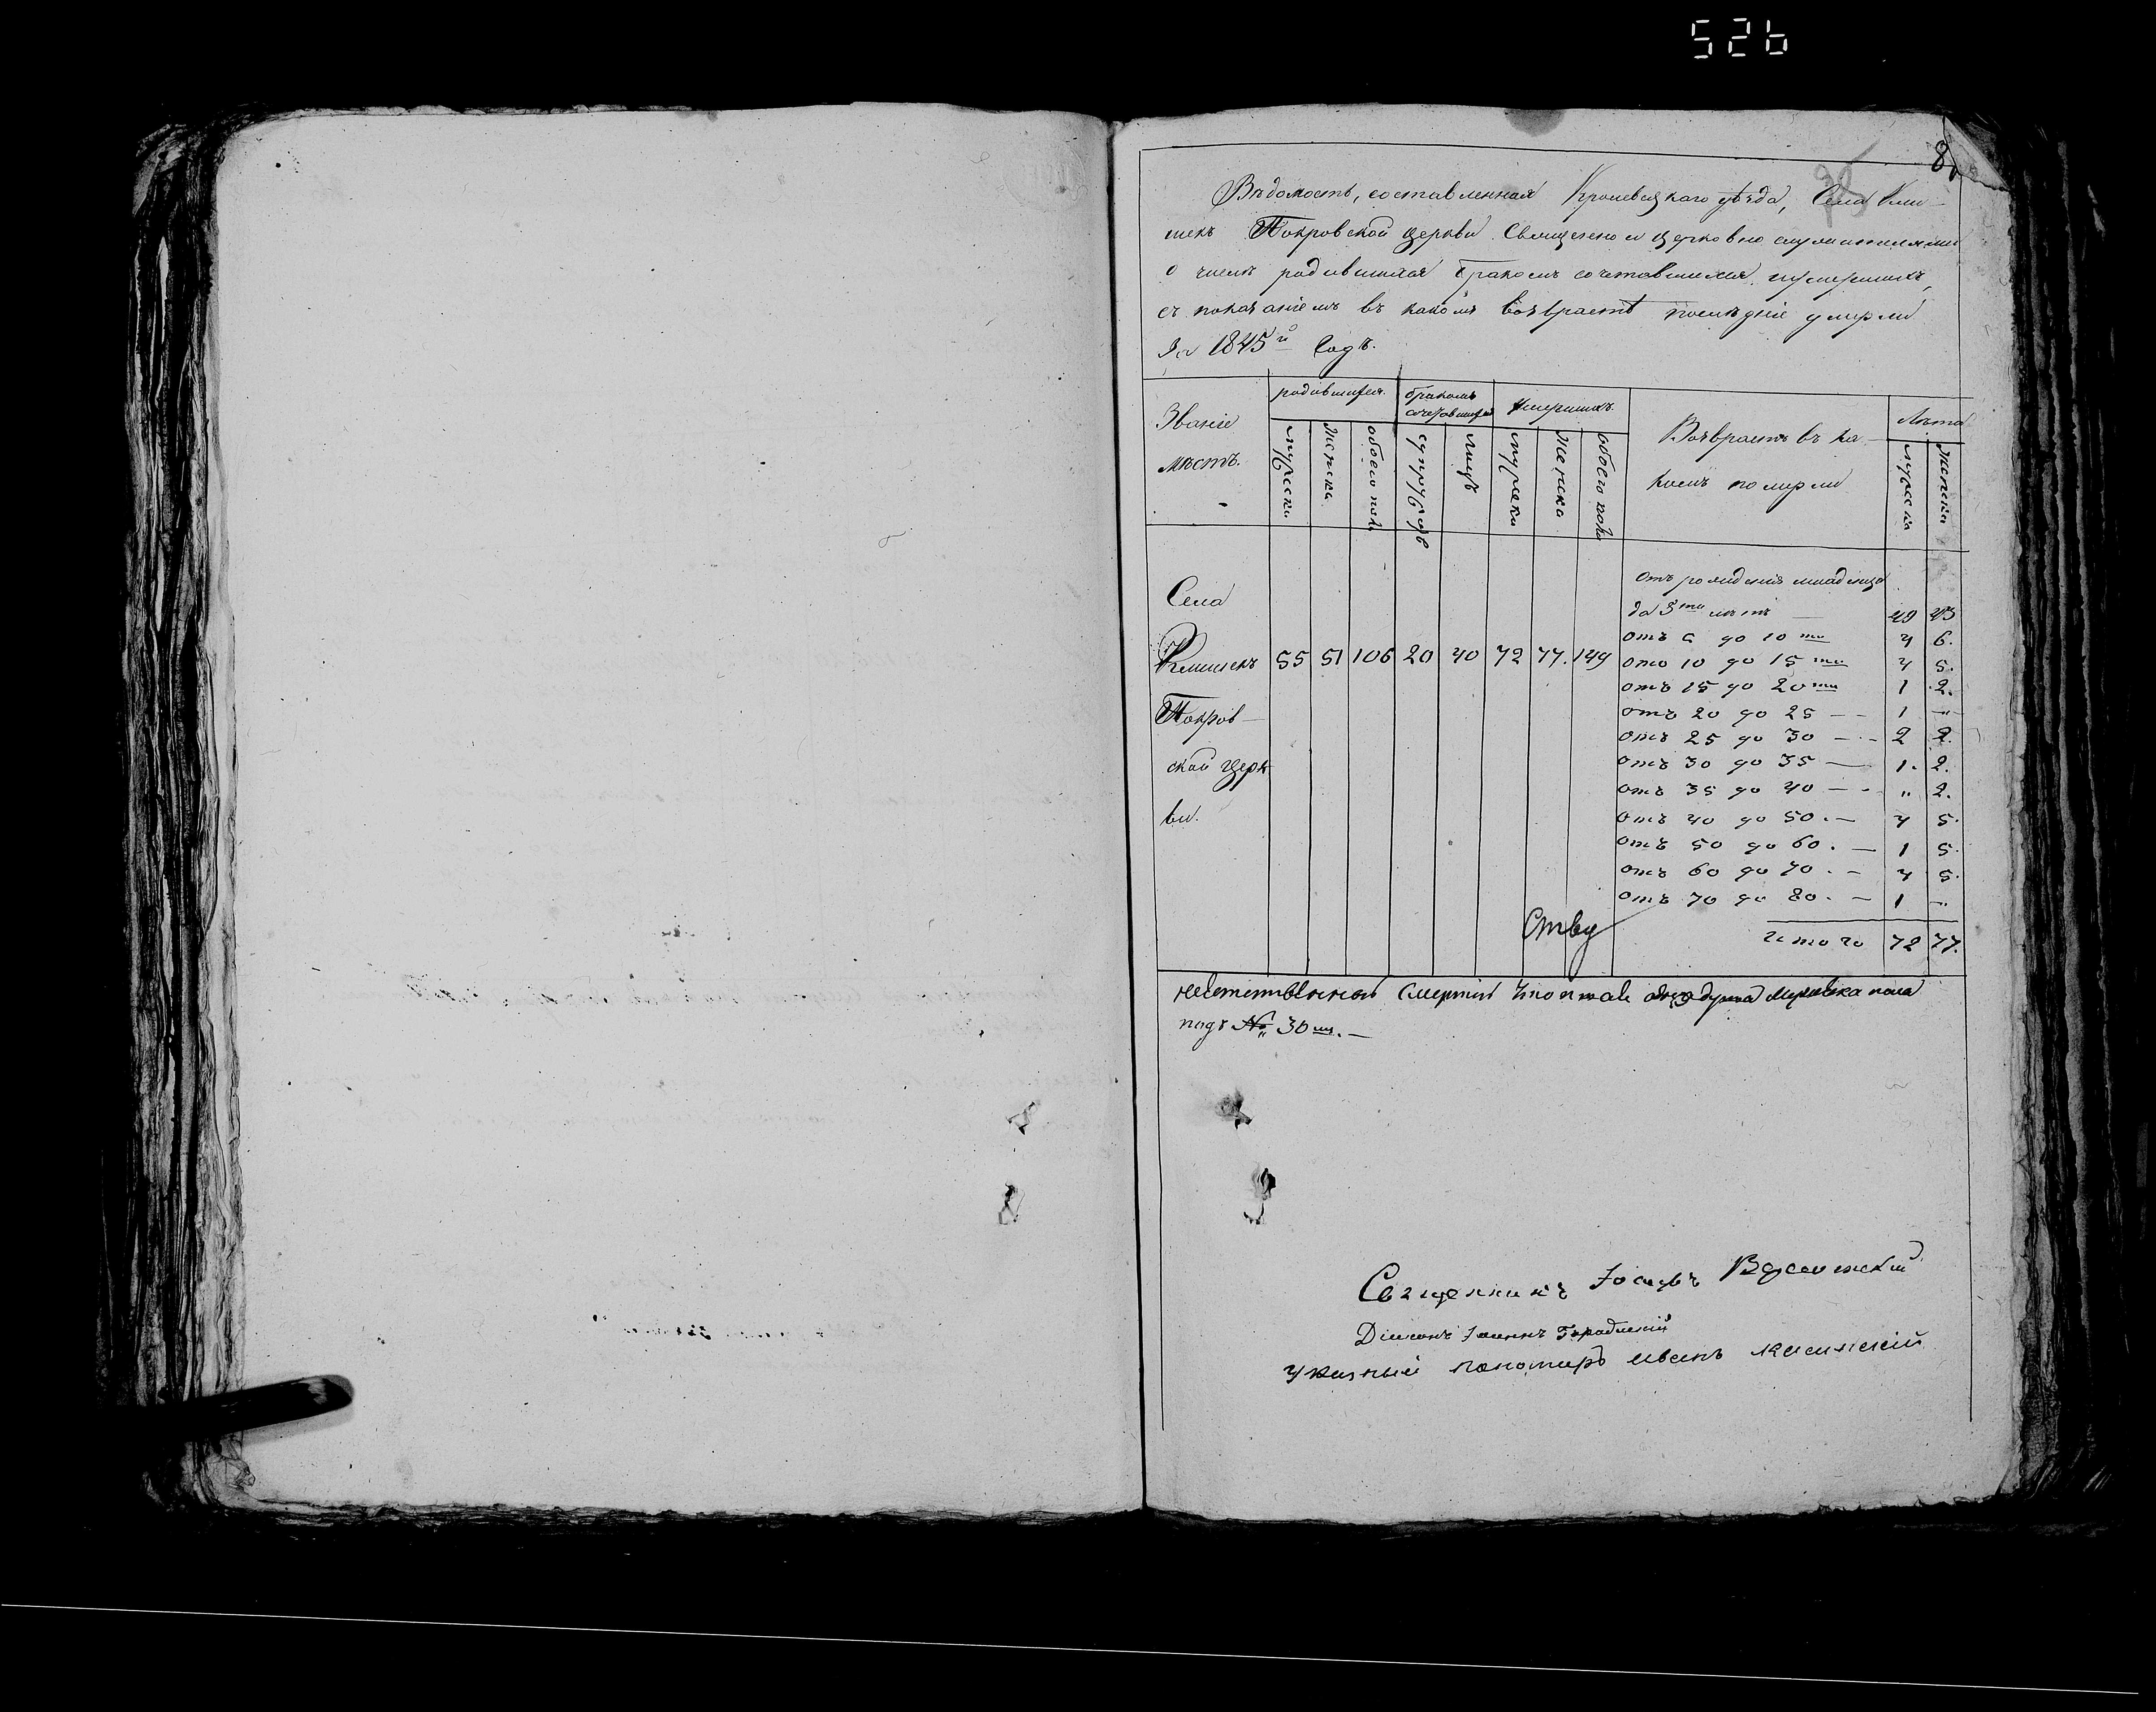 526
8
Вѣдомость, составленная Кролевецкаго уѣзда, Села Кли-
шекъ Покровской Церкви Священно и церковно служителями
о числѣ родившихся бракомъ сочетавшихся и умершихъ,
съ показаніемъ въ какомъ возврастѣ послѣдніе умерли
За 1845й Годъ.
Званіе мѣстъ. родившихся. бракомъ сочетавшихся Умершихъ. Возврастъ въ ка- комъ померли Лѣта
мужеска женска обоего пола супружествъ лицъ мужеска женска обоего пола мужеска женска
Села
Клишекъ 55 51 106 20 40 72 77. 149
Покров-
ской церк
ви.
отъ рожденія младенца
до 5ти лѣтъ — 48 43
отъ 5 до 10ти 4 6.
отъ 10 до 15ти 4 5.
отъ 15 до 20ти 1 2.
отъ 20 до 25 — — 1 —„—
отъ 25 до 30 — — 2 2.
отъ 30 до 35 — 1. 2.
отъ 35 до 40 — - „ 2.
отъ 40 до 50. — 4 5.
отъ 50 до 60. — 1 5.
отъ 60 до 70. — 4 5.
отъ 70 до 80. — 1 —„
итого 72 77.
неестественной смертію мужеска пола
подъ № 30мъ. —
Священникъ Іосифъ
Діаконъ Іоаннъ Городискій
Указный пономарь Иванъ